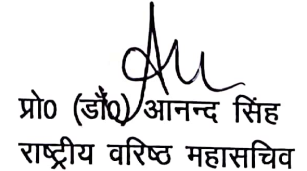 प्रो0 (डॉ0) आनन्द सिंह
राष्ट्रीय वरिष्ठ महासचिव